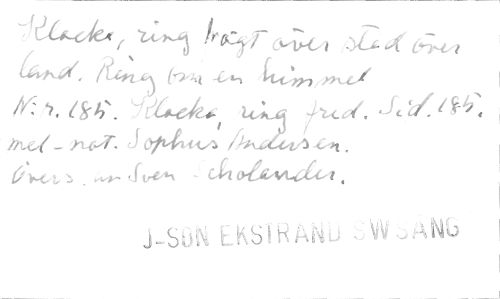 Klocka, ring högt över stad över
land. Ring om en himmel
N:r. 185. Klocka, ring fred. Sid. 185.
mel-not. Sophus Andersen.
Övers. av Sven Scholander.
J-SON EKSTRAND SW SÅNG